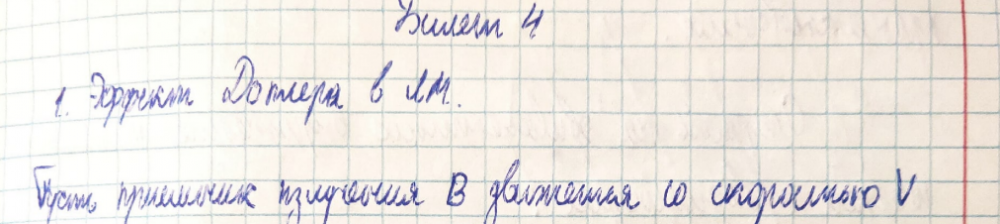 Билет 4
1. Эффект Доплера в ЛМ.
Пусть приемник излучения B движется со скоростью V